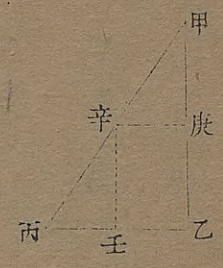 甲
辛 庚
丙 壬 乙